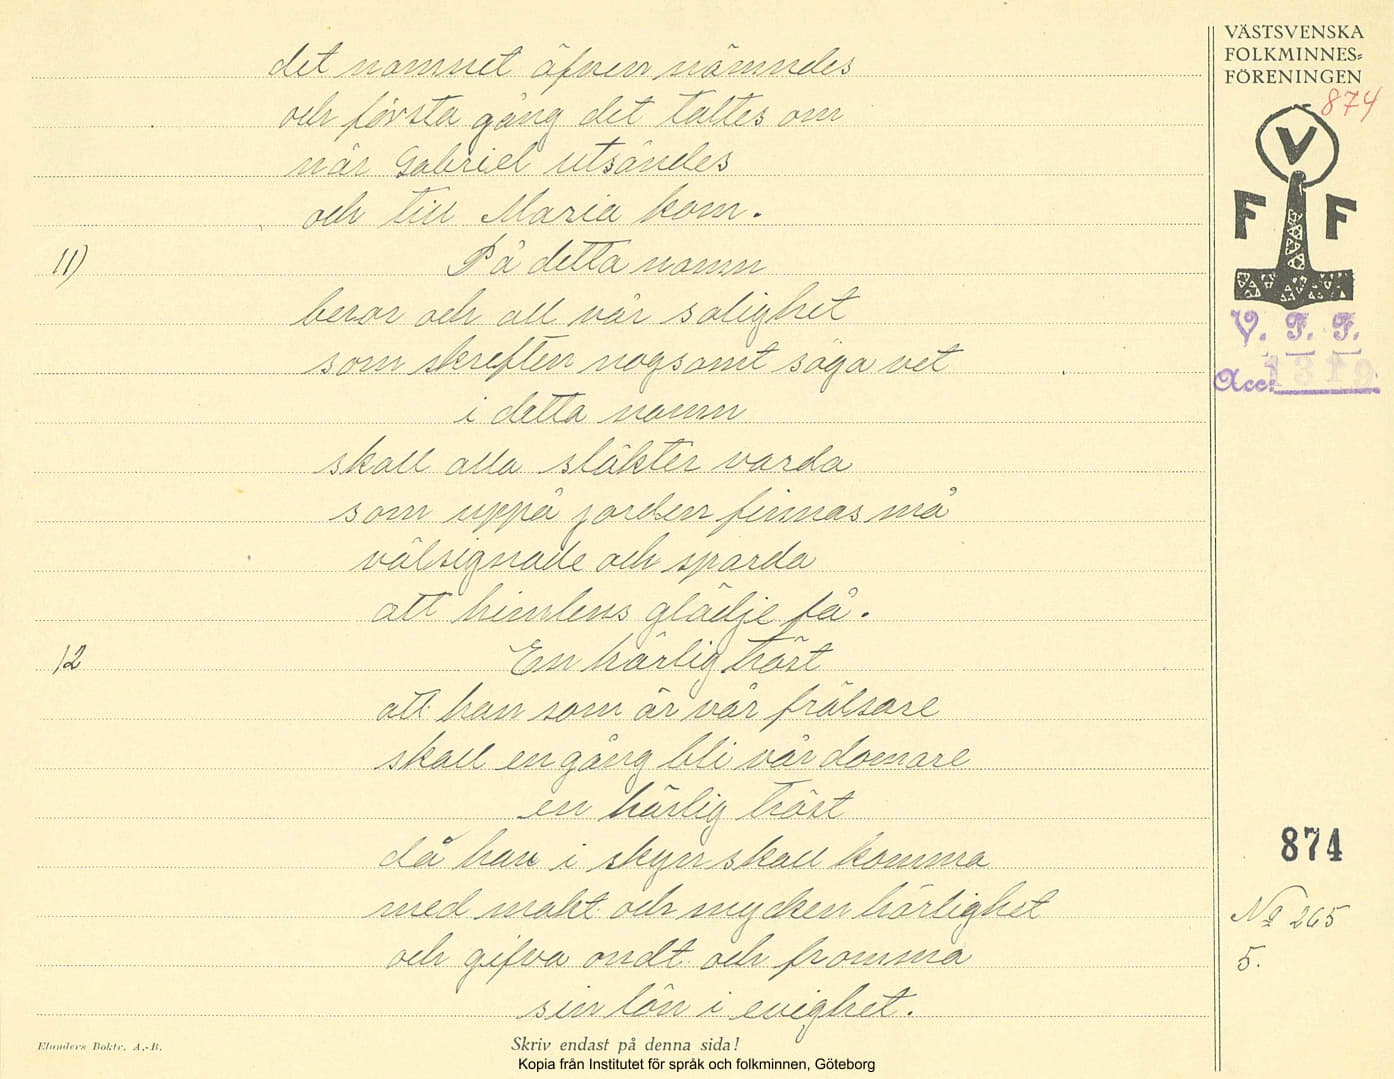 det namnet äfven nämndes
och första gång det taltes om
när Gabriel utsändes
och till Maria kom.
11) På detta namn
beror och all vår salighet
som skreften nogsamt säga vet
i detta namn
skall alla släkter varda
som uppå jorden finnas må
välsignade och sparda
att himlens glädje få.
12 En härlig tröst
att han som är vår frälsare
skall en gång bli vår domare
en härlig tröst
då han i skyn skall komma
med makt och mycken härlighet
och gifva ondt och fromma
sin lön i evighet.
VÄSTSVENSKA
FOLKMINNES=
FÖRENINGEN
874
V
F F
V. F. F.
Acc. 1319
874
No 265
5.
Elanders Boktr. A.-B.
Skriv endast på denna sida!
Kopia från Institutet för språk och folkminnen, Göteborg